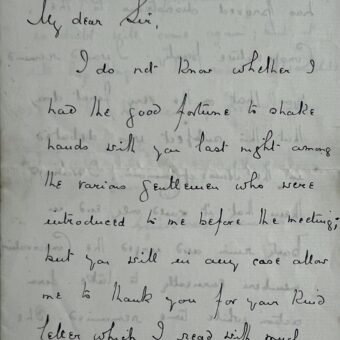 My dear Sir,
I do not know whether I
had the good fortune to shake
hands with you last night among
the various gentlemen who were
introduced to me before the meeting;
but you will in any case allow
me to thank you for your kind
letter which I read with much